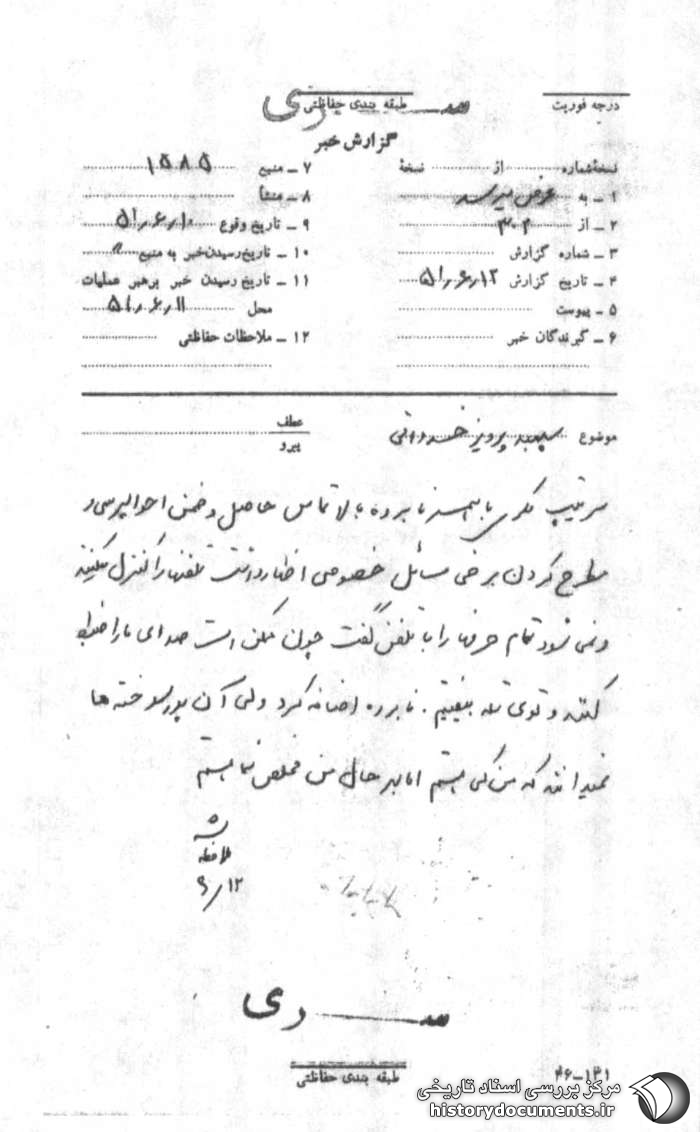 درجه فوریت
طبقه بندی حفاظتی
سری
گزارش خبر
نسخهٔ شماره ........ از ........ نسخهٔ
۱ ــ به عرض میرسد
۲ ــ از ۳۰۲
۳ ــ شماره گزارش
۴ ــ تاریخ گزارش ۵۱٫۶٫۱۲
۵ ــ پیوست
۶ ــ گیرندگان خبر
۷ ــ منبع ۱۵۸۵
۸ ــ منشأ
۹ ــ تاریخ وقوع ۵۱٫۶٫۱۰
۱۰ ــ تاریخ رسیدن خبر به منبع 〃
۱۱ ــ تاریخ رسیدن خبر برهبر عملیات
محل ۵۱٫۶٫۱۱
۱۲ ــ ملاحظات حفاظتی
موضوع سپهبد پرویز خسروانی
عطف
پیرو
سرتیپ با همسر نامبرده بالا تماس حاصل و ضمن احوالپرسی و
مطرح کردن برخی مسائل خصوصی اظهار داشت تلفنها را کنترل میکنند
و نمی شود تمام حرفها را با تلفن گفت چون ممکن است صدای ما را ضبط
کنند و توی تله بیفتیم . نامبرده اضافه کرد ولی آن پدرسوخته ها
نمیدانند که من کی هستم اما بهر حال من مخلص شما هستم
ملاحظه
۶٫۱۲
سری
طبقه بندی حفاظتی
۴۶-۱۳۱
مرکز بررسی اسناد تاریخی
historydocuments.ir